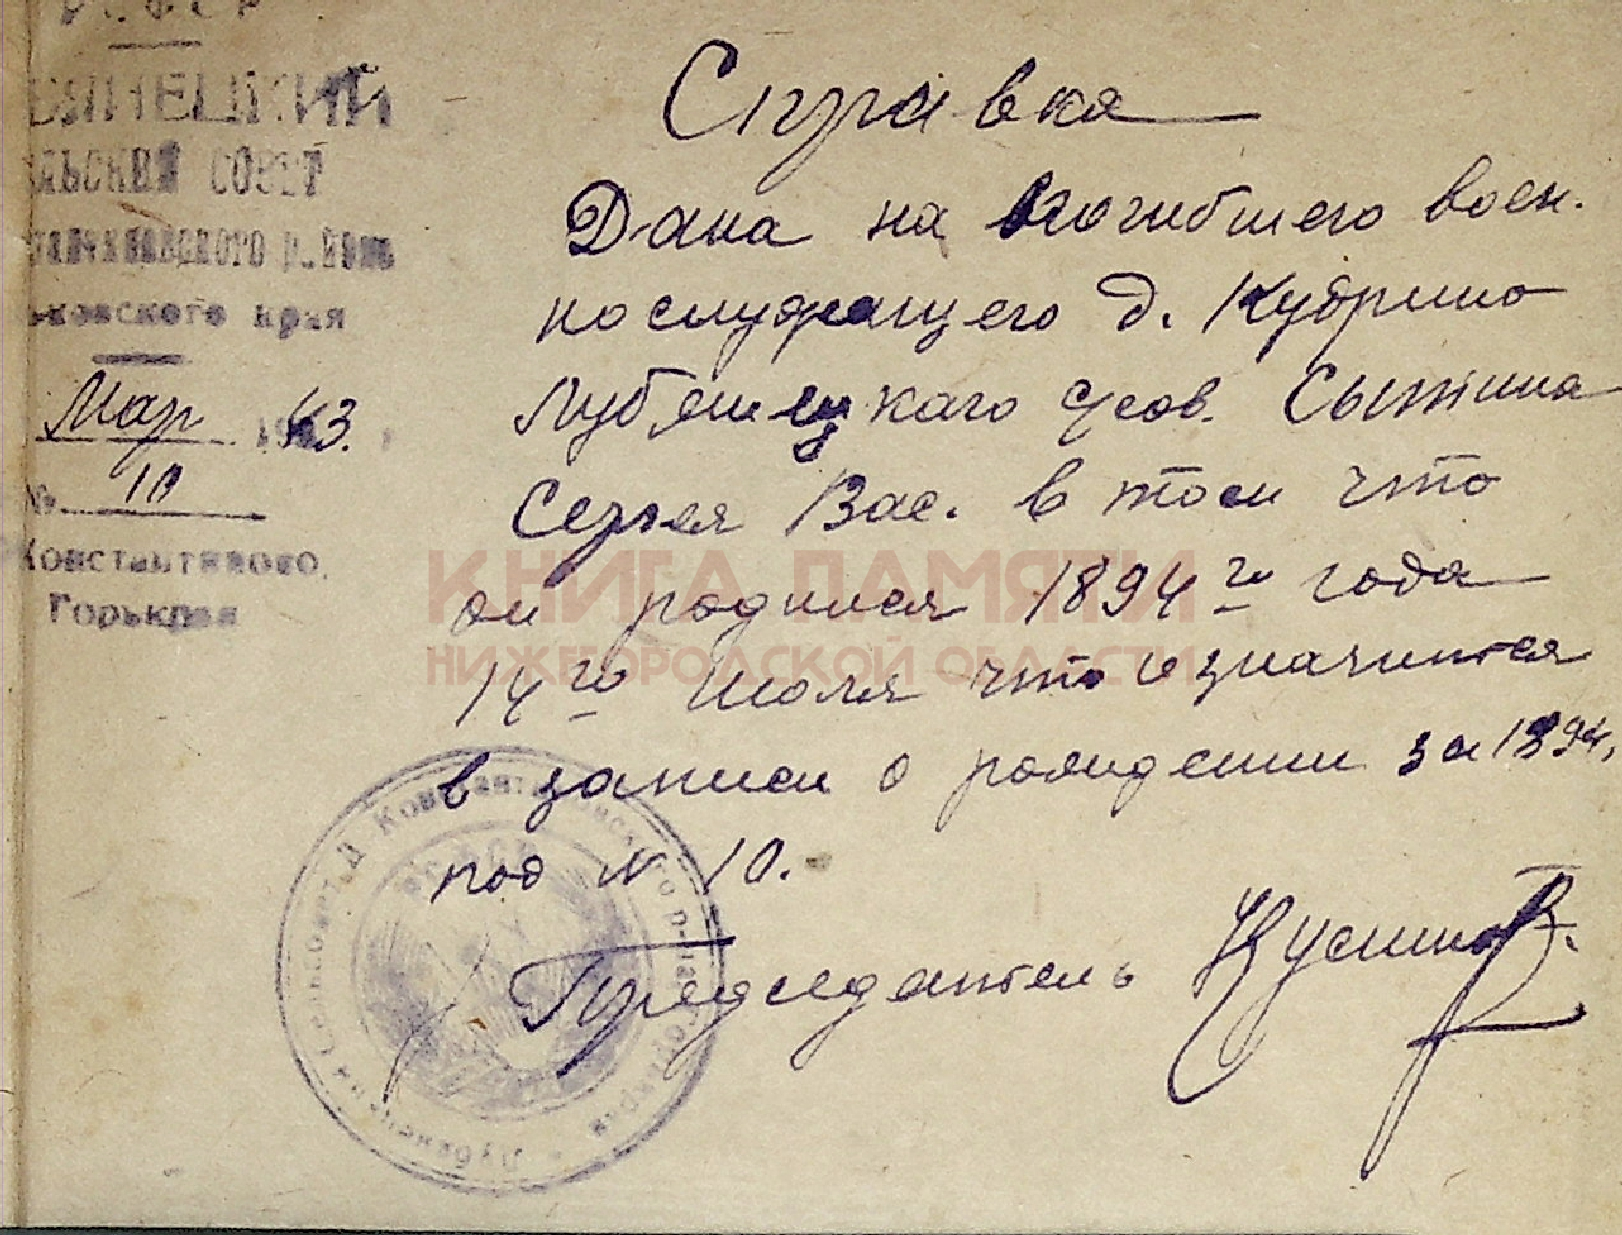 РСФСР
ЕЛЬСКИЙ СОВЕТ
ьковского края
Мар 1943.
№ 10
Константиново
Горькрая
Справка
Дана на погибшего воен.
нослужащего д. Кудрино
Лубянецкаго с/сов. Сытина
Сергея Вас. в том что
он родился 1894 го года
14 го Июля что и значится
в записи о рождении за 1894,
под № 10.
Председатель
КНИГА ПАМЯТИ
НИЖЕГОРОДСКОЙ ОБЛАСТИ